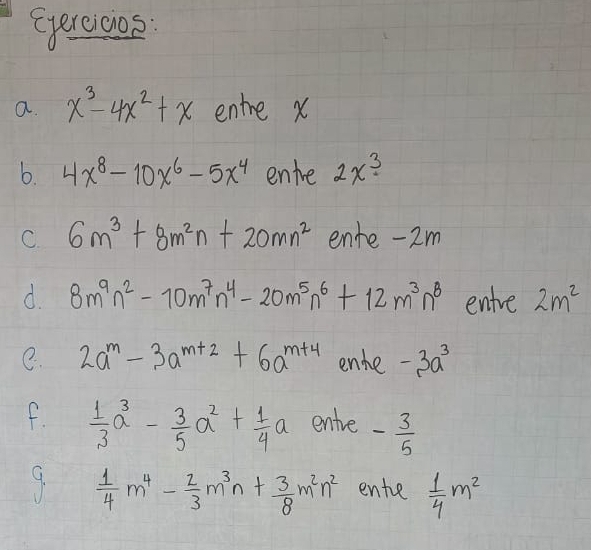 Ejercicios:
a. x³ - 4x² + x entre x
b. 4x⁸ - 10x⁶ - 5x⁴ entre 2x³
c. 6m³ + 8m²n + 20mn² entre -2m
d. 8m⁹n² - 10m⁷n⁴ - 20m⁵n⁶ + 12m³n⁸ entre 2m²
e. 2aᵐ - 3aᵐ⁺² + 6aᵐ⁺⁴ entre -3a³
f. 1/3 a³ - 3/5 a² + 1/4 a entre - 3/5
g. 1/4 m⁴ - 2/3 m³n + 3/8 m²n² entre 1/4 m²